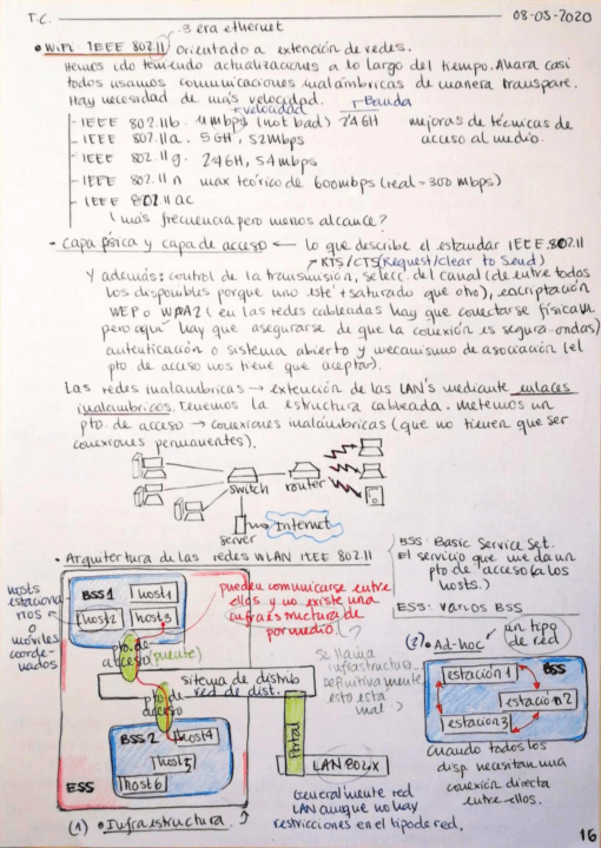 T.C.
08-05-2020
.3 era ethernet
• WiFi IEEE 802.11 orientado a extención de redes.
Hemos ido teniendo actualizaciones a lo largo del tiempo. Ahora casi
todos usamos comunicaciones inalámbricas de manera transpare.
Hay necesidad de más velocidad.
velocidad
Banda
- IEEE 802.11b. 11mbps (not bad) 2'4GH
mejoras de técnicas de
acceso al medio.
- IEEE 802.11a. 5GH, 52Mbps
- IEEE 802.11g. 2'4GH, 54mbps
- IEEE 802.11n max teórico de 600mbps (real = 300 Mbps)
- IEEE 802.11ac
(más frecuencia pero menos alcance?
- Capa física y capa de acceso ← lo que describe el estandar IEEE.802.11
RTS/CTS (Request/Clear to Send)
Y además: control de la transmisión, selecc. del canal (de entre todos
los disponibles porque uno esté + saturado que otro), encriptación
WEP o WPA2 (en las redes cableadas hay que conectarse física
pero aquí hay que asegurarse de que la conexión es segura-ondas)
autenticación o sistema abierto y mecanismo de asociación (el
pto. de acceso nos tiene que aceptar).
Las redes inalambricas → extención de las LAN's mediante enlaces
inalambricos. Tenemos la estructura cableada. Metemos un
pto. de acceso → conexiones inalámbricas (que no tienen que ser
conexiones permanentes).
switch
router
server
Internet
• Arquitertura de las redes WLAN IEEE 802.11
BSS: Basic Service Set.
El servicio que me da un
pto de acceso (a los
hosts.)
ESS: Varios BSS
hosts
estaciona
rios
o
móviles
coorde-
nados
BSS1
host1
host2
host3
pueden comunicarse entre
ellos y no existe una
infraestructura de
por medio.
pto. de
acceso (puente)
se llama
infraestructura.
Definitivamente
esto está
mal :)
sitema de distrib
red de dist.
pto. de
acceso
BSS2
host4
host5
host6
ESS
Portal
LAN 802.x
Generalmente red
LAN aunque no hay
restricciones en el tipo de red.
(1) • Infraestructura.
(2) • Ad-hoc
un tipo
de red
BSS
estación 1
estación 2
estación 3
Cuando todos los
disp. necesitan una
conexión directa
entre ellos.
16